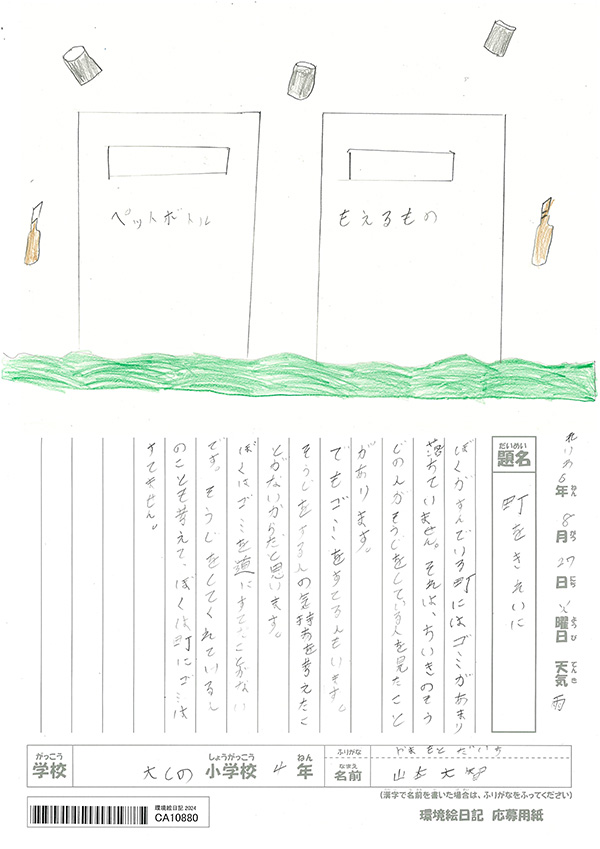 ペットボトル
もえるもの
れいわ6年 8月 27日 火曜日 天気 雨
ねん がつ にち ようび てんき
だいめい
題名
町をきれいに
ぼくがすんでいる町にはゴミがあまり
落ちていません。それは、ちいきのそう
じの人がそうじをしている人を見たこと
があります。
でもゴミをすてる人もいます。
そうじをする人の気持ちを考えたこ
とがないからだと思います。
ぼくはゴミを道にすてたことがない
です。そうじをしてくれている人
のことも考えて、ぼくは町にゴミは
すてません。
がっこう しょうがっこう ねん
学校 大しの 小学校 4年
ふりがな やまもと だいち
なまえ
名前 大智
(漢字で名前を書いた場合は、ふりがなをふってください)
環境絵日記 2024
CA10880
環境絵日記 応募用紙